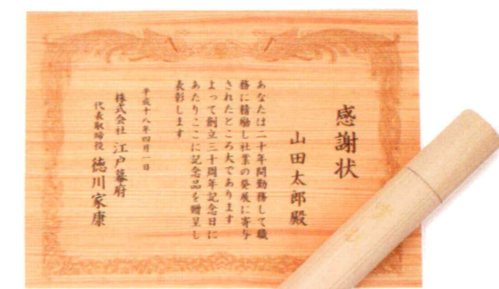 感謝状
山田太郎殿
あなたは二十年間勤務して職
務に精励し社業の発展に寄与
されたところ大であります
よって創立三十周年記念日に
あたりここに記念品を贈呈し
表彰します
平成十八年四月一日
株式会社 江戸幕府
代表取締役 徳川家康